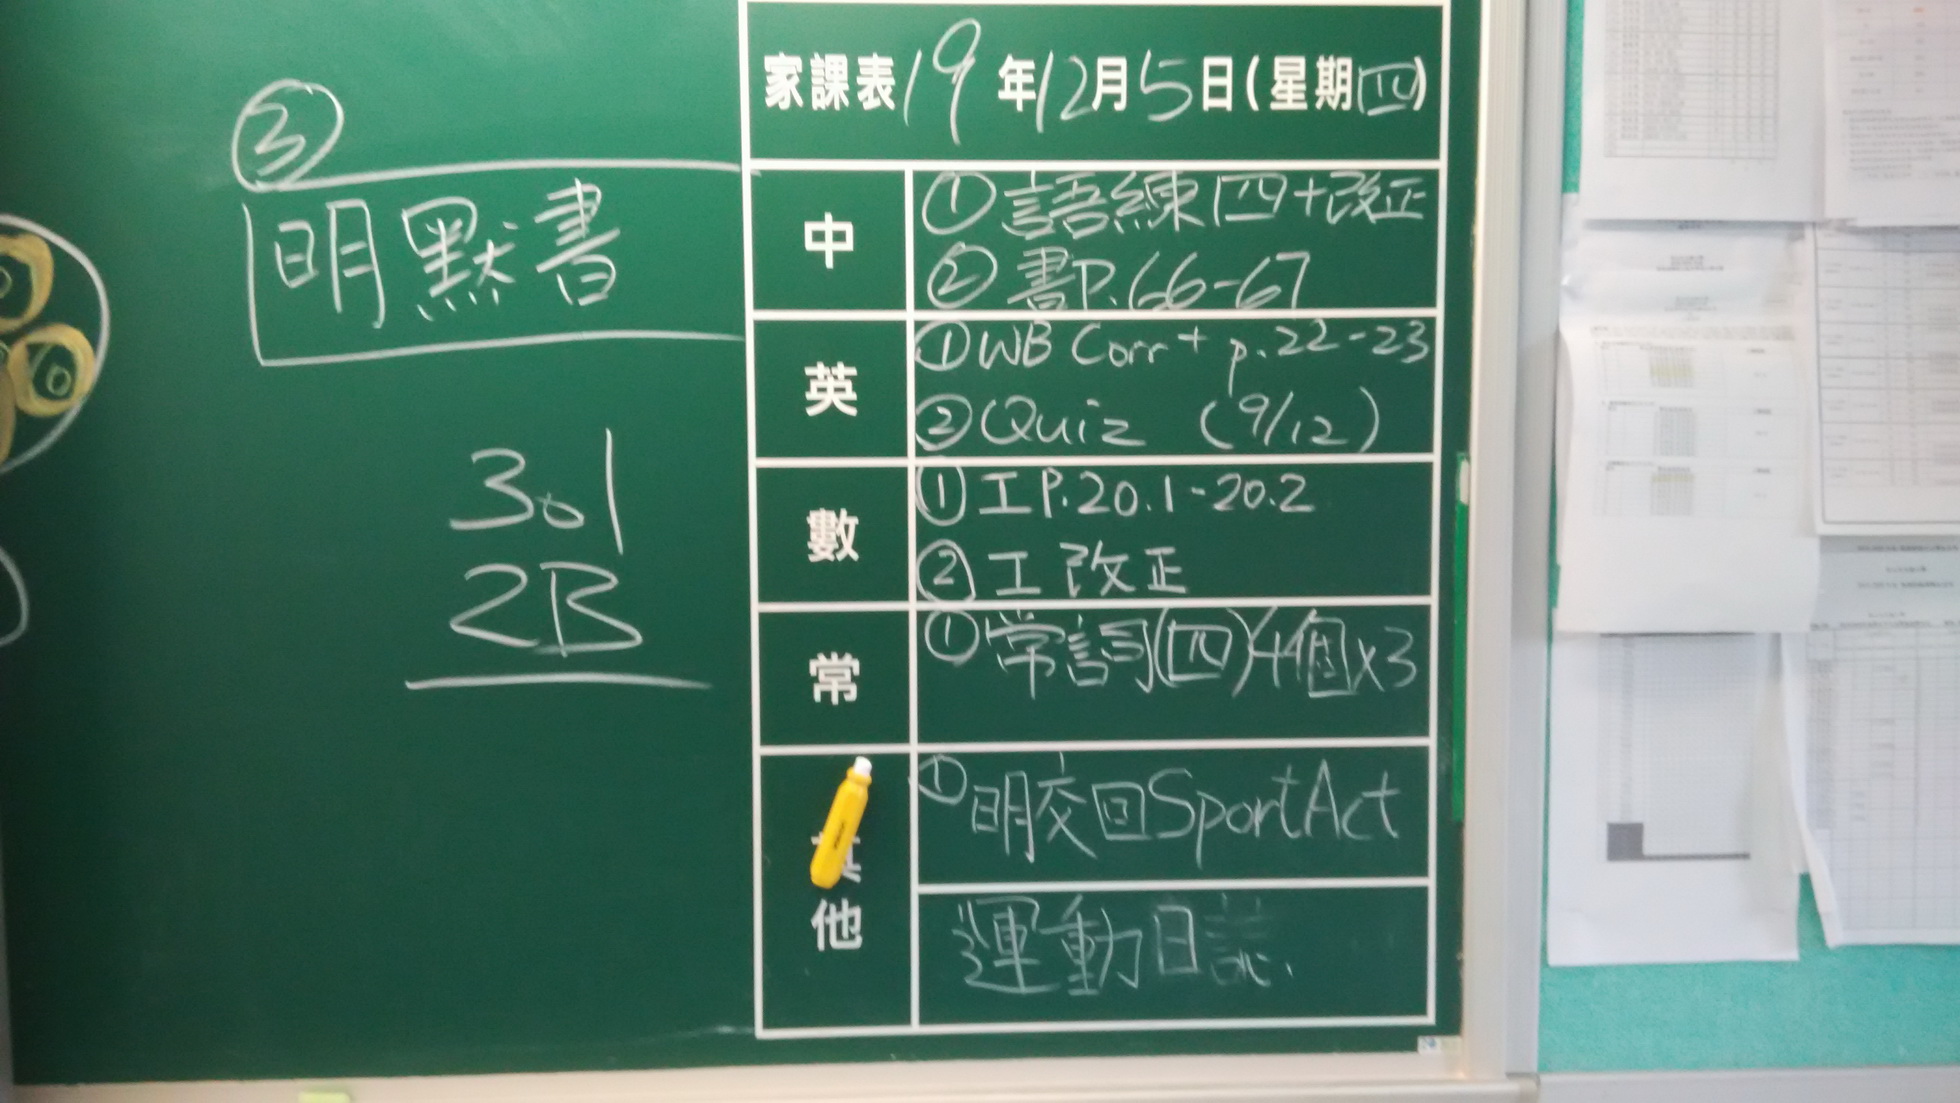 家課表19年12月5日(星期四)
③
明默書
中
①語練四+改正
②書P.66-67
英
①WB Corr+ p.22-23
②Quiz (9/12)
數
①工P.20.1-20.2
②工改正
常
①常詞(四)4個x3
其他
①明交回SportAct
運動日誌.
301
2B